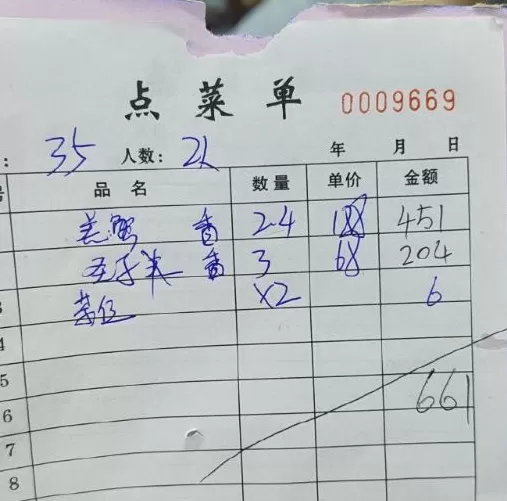 点菜单 0009669
: 35 人数: 2人 年 月 日
号 品名 数量 单价 金额
羔蟹 香 2.4 188 451
香 3 68 204
3 茶位 ×2 6
4
5 661
6
7
8